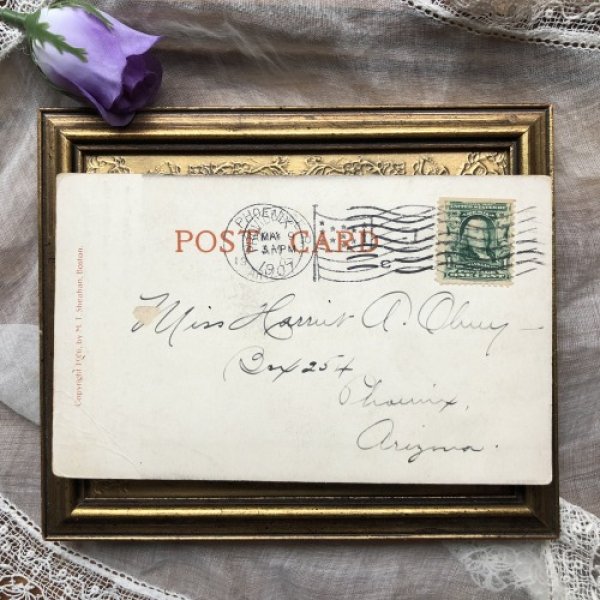 POST CARD
PHOENIX
MAY
PM
1907
Miss Harriet A. Olney
Box 254
Phoenix,
Arizona.
Copyright 1906, by M. T. Sheahan, Boston.